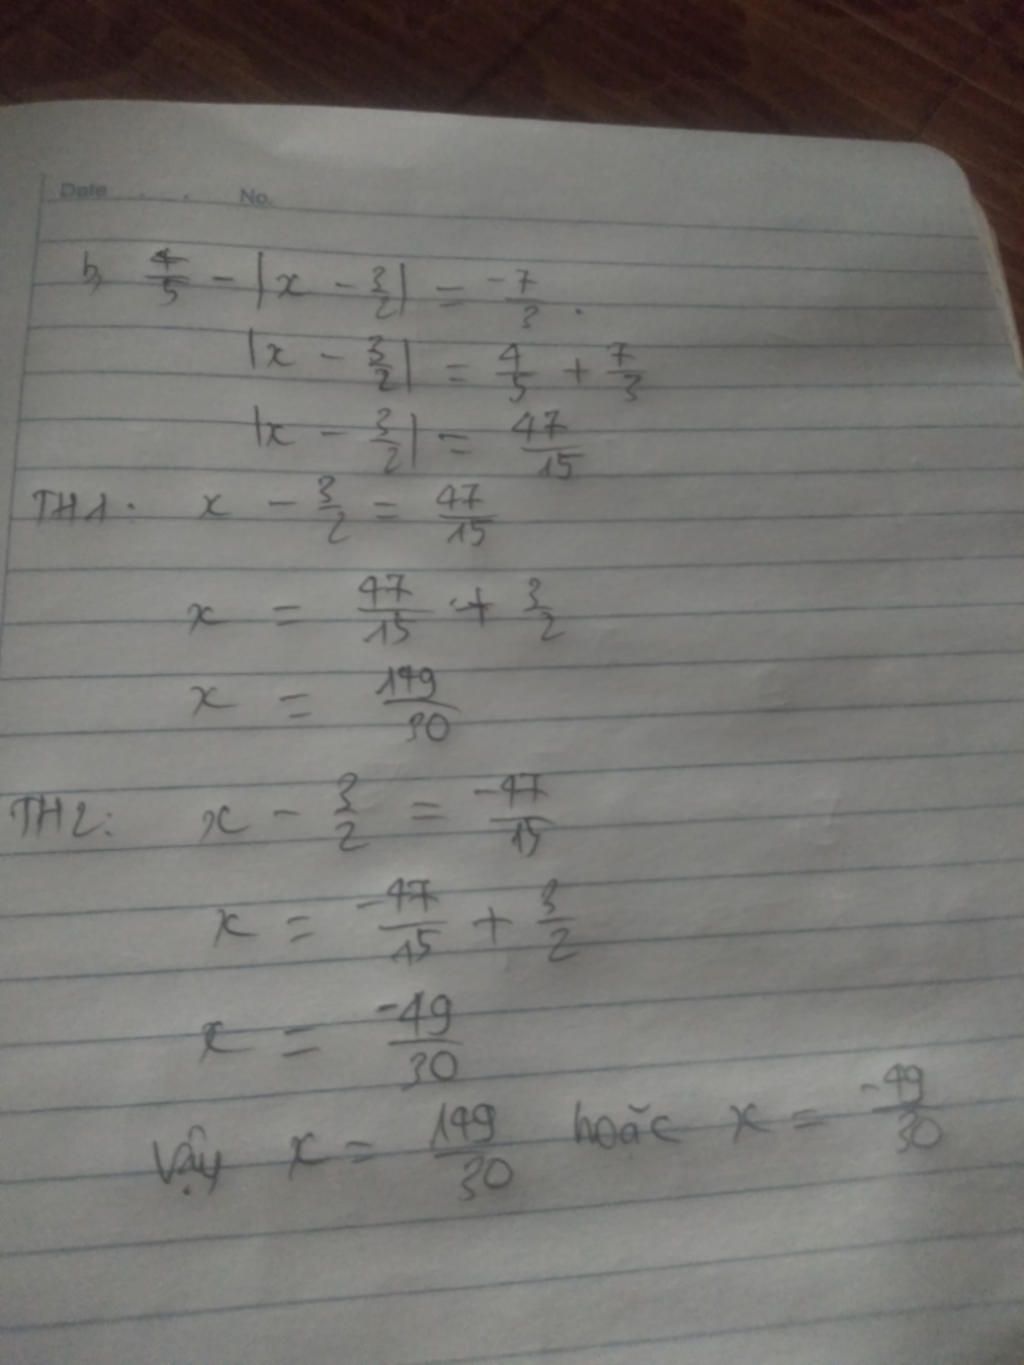 Date . . No.
b, 4/5 - |x - 3/2| = -7/3 .
|x - 3/2| = 4/5 + 7/3
|x - 3/2| = 47/15
TH1: x - 3/2 = 47/15
x = 47/15 + 3/2
x = 149/30
TH2: x - 3/2 = -47/15
x = -47/15 + 3/2
x = -49/30
Vậy x = 149/30 hoặc x = -49/30